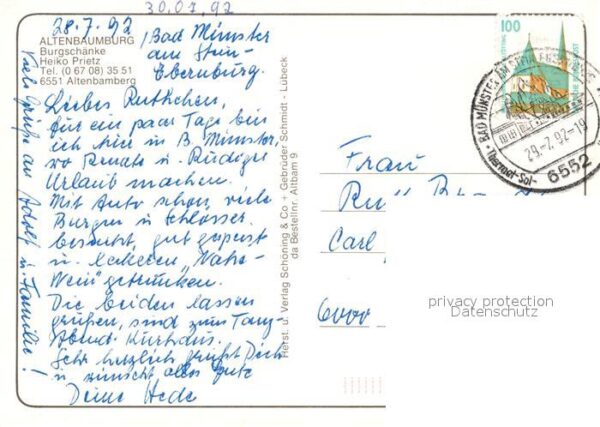 30.07.92
28.7.92
ALTENBAUMBURG
Burgschänke
Heiko Prietz
Tel. (0 67 08) 35 51
6551 Altenbamberg
Bad Münster
am Stein-
Ebernburg.
Liebes Ruthchen,
für ein paar Tage bin
ich hier in B. Münster,
wo Renate u. Rüdiger
Urlaub machen.
Mit Auto schon viele
Burgen u. Schlösser
besucht, gut gespeist
u. leckeren "Nahe-
Wein" getrunken.
Die beiden lassen
grüßen, sind zum Tanz-
Abend Kurhaus.
Sehr herzlich grüßt Dich
u. wünscht alles Gute
Deine Hede
Viele Grüße an Adolf u. Familie!
Herst. u. Verlag Schöning & Co + Gebrüder Schmidt - Lübeck
da Bestellnr. Altbam 9
100
BAD MÜNSTER AM STEIN
29.-7.92-19
6552
Thermal-Sol-
Frau
Carl
6000
privacy protection
Datenschutz